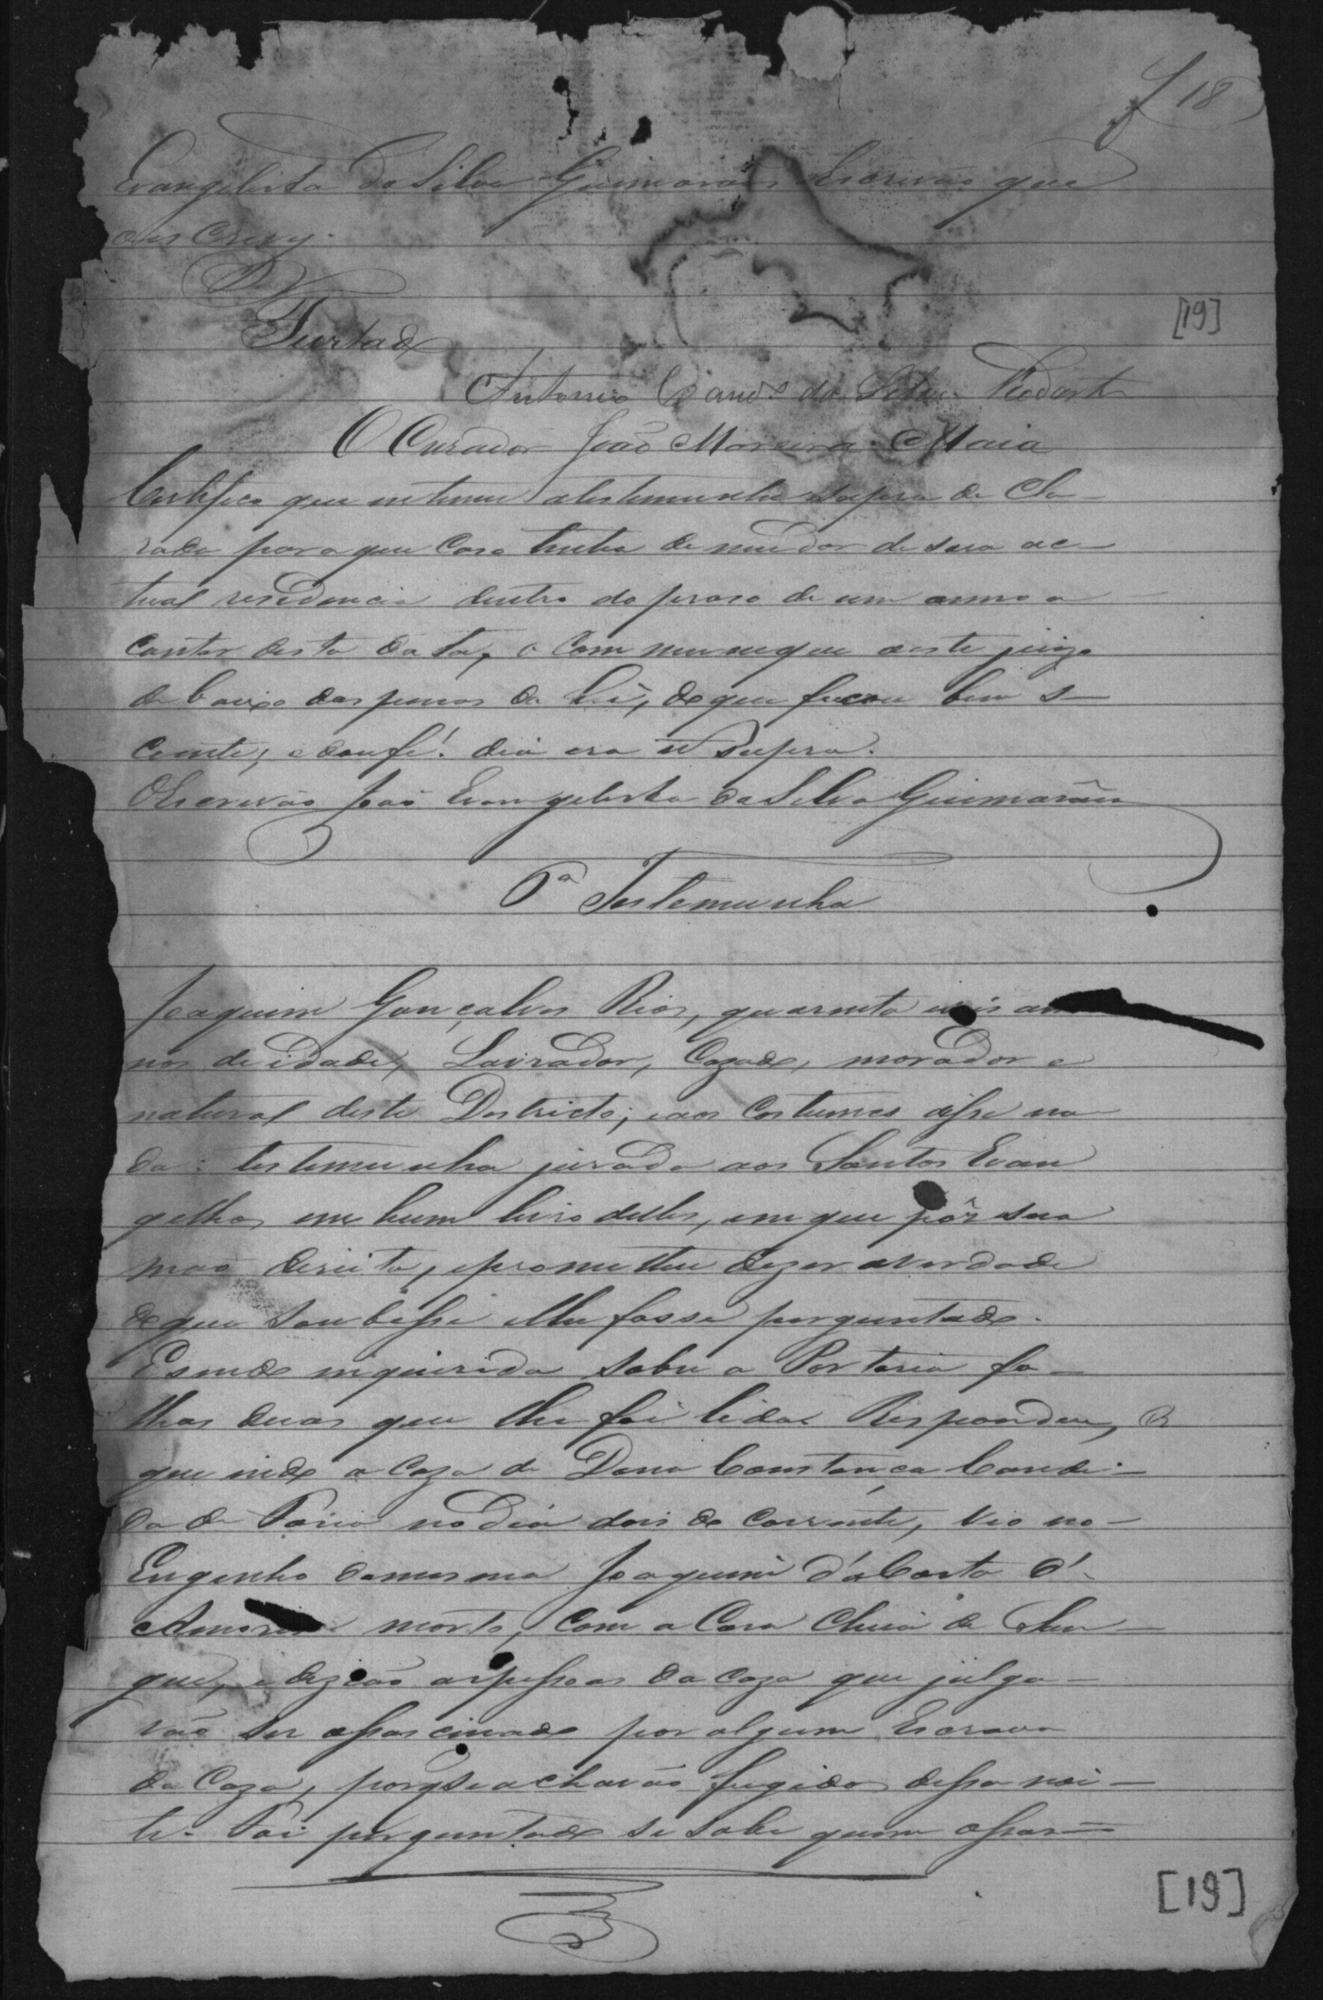 f 18
Evangelista da Silva Guimarães Escrivão que
o es Crevy.
Furtado
[19]
Antonio Cand.º da Silva
O Curador João Moreira Maia
Certifico que intimei a testemunha supra de cla-
rada para que caso tenha de mudar de sua ac-
tual residencia dentro do praso de um anno a
contar desta data, o communique a este juizo
de baixo das penas da Lei, do que ficou bem s-
ciente; e dou fé. dia era ut supra.
O Escrivão João Evangelista da Silva Guimarães
6ª Testemunha
Joaquim Gonçalves Rios, quarenta e seis an
nos de idade, Lavrador, Cazado, morador e
natural deste Destricto; e aos costumes disse na
da: testemunha jurada aos Santos Evan
gelhos em hum livro delles, em que pôr sua
mão direita, e prometteu dizer a verdade
do que soubesse e lhe fosse perguntado.
E sendo inquirida sobre a Portaria fo-
lhas duas que lhe foi lida. Respondeu,
que indo a caza de Dona Constança Candi-
da de Faria no dia dois do corrente, vio no
Engenho da mesma Joaquim d'a Costa d'
Amorim morto, com a Cara cheia de San-
gue, e dizião as pessoas da caza que julga-
vão ser assascinado por algum Escravo
da Caza, porq se achavão fugidos dessa noi-
te. Foi perguntado se sabe quem assas-
[19]